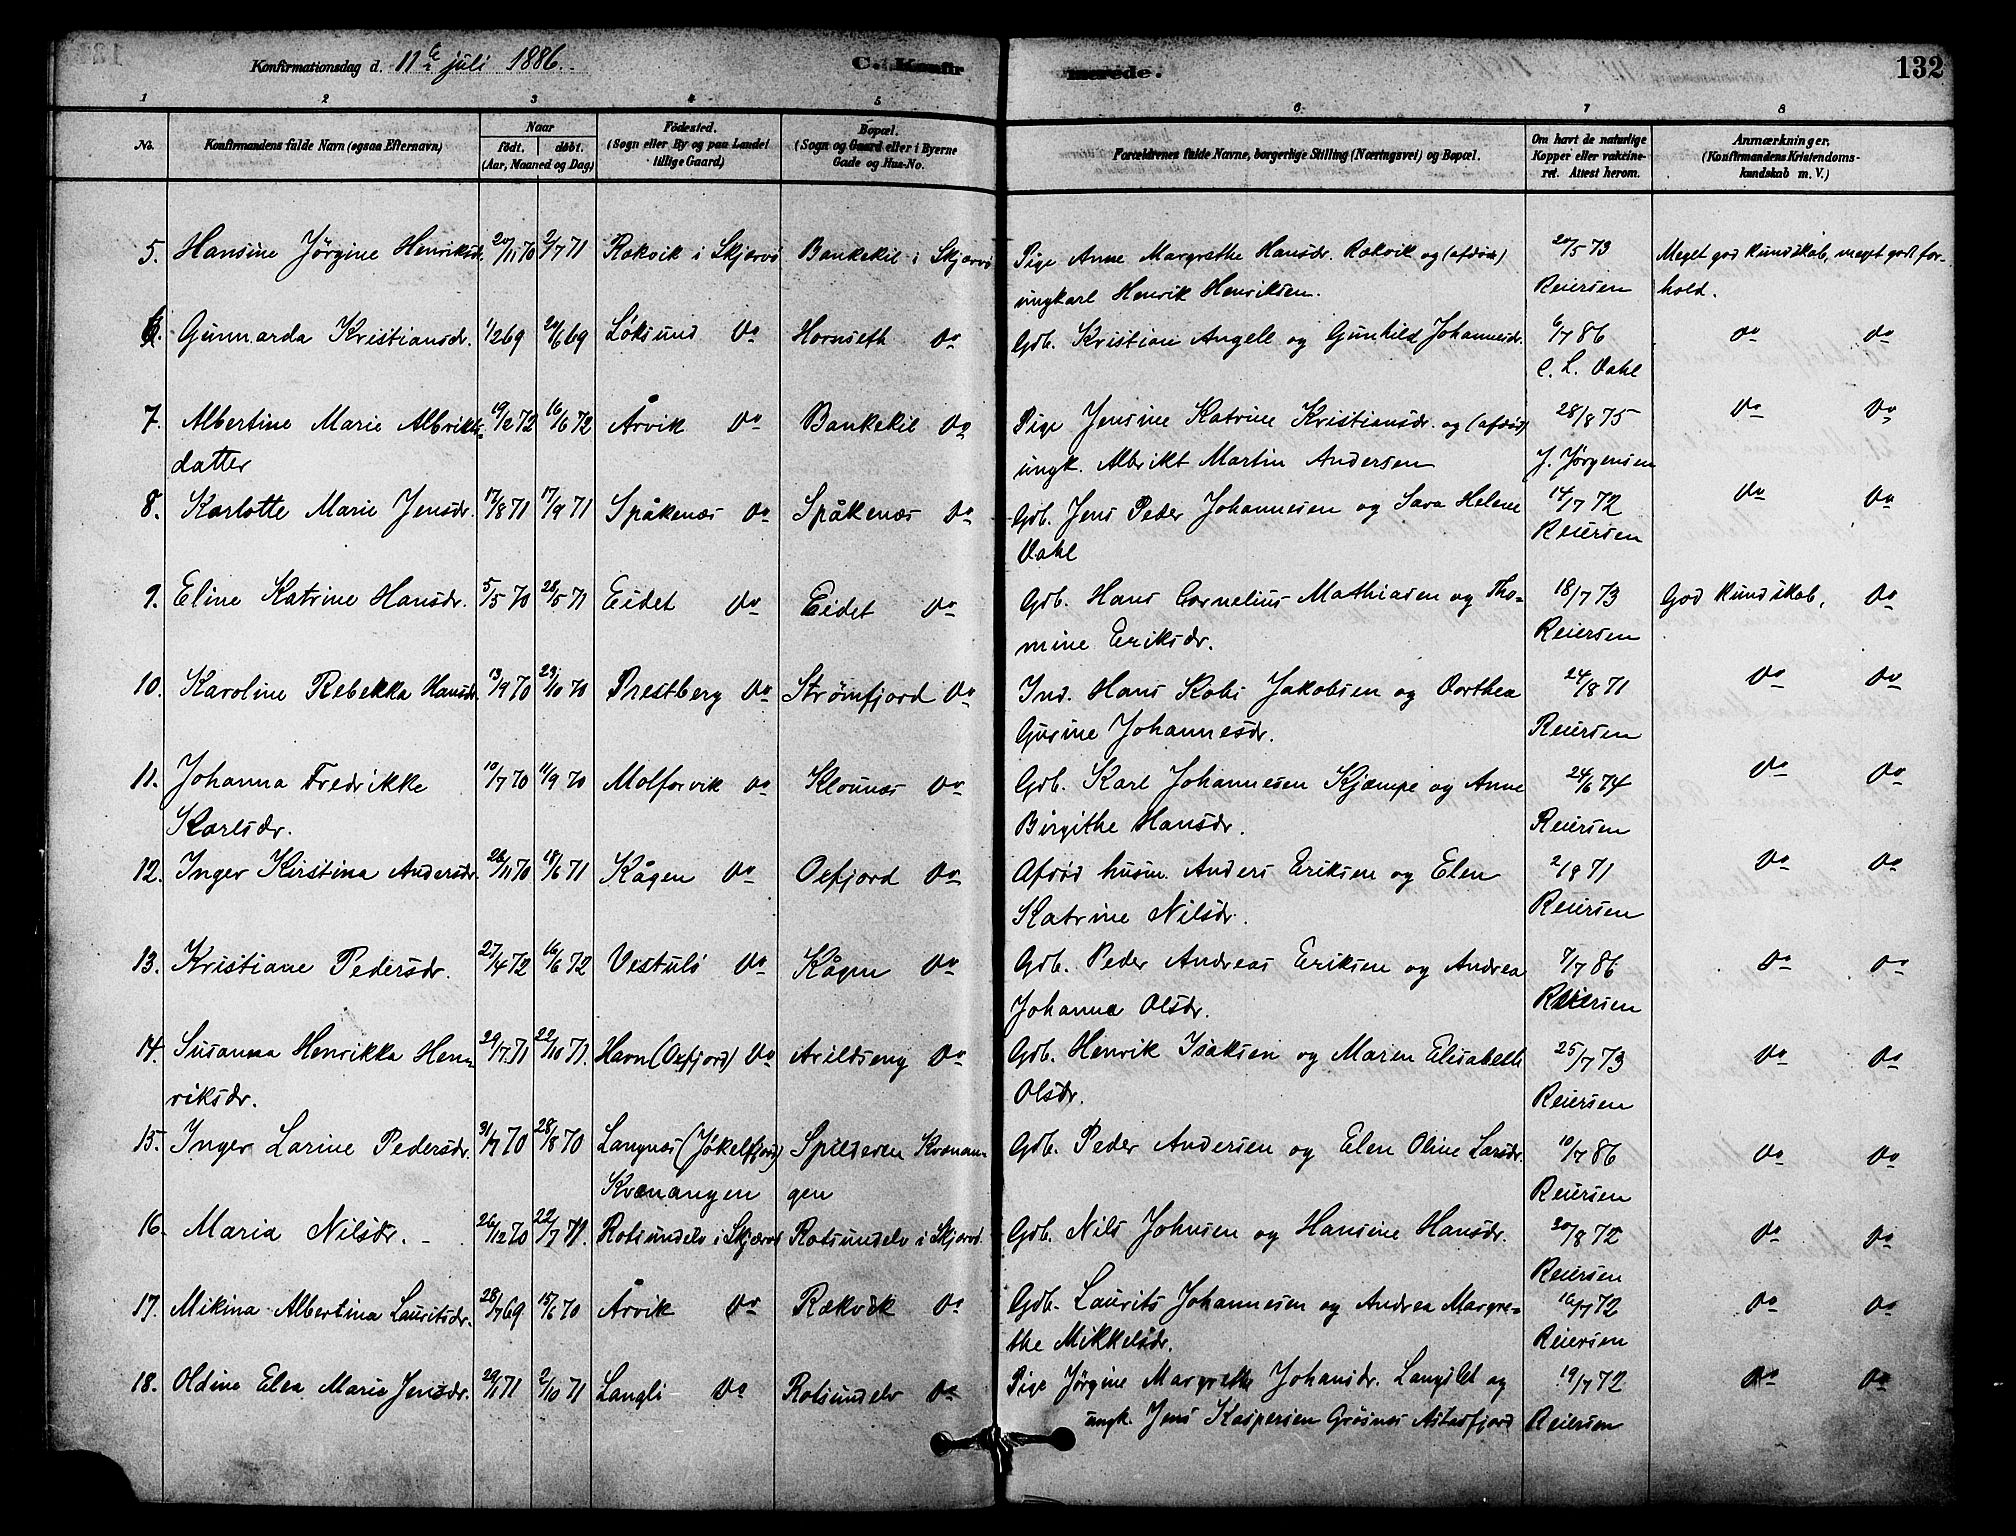 Konfirmationsdag d. 11te juli 1886.
C. Konfirmerede.
132
1 2 3 4 5 6 7 8
No. Konfirmandens fulde Navn (ogsaa Efternavn) Naar født. døbt. (Aar, Maaned og Dag) Fødested. (Sogn eller By og paa Landet tillige Gaard) Bopæl. (Sogn og Gaard eller i Byerne Gade og Hus-No. Forældrenes fulde Navne, borgerlige Stilling (Næringsvei) og Bopæl. Om havt de naturlige Kopper eller vaktineret. Attest herom. Anmærkninger. (Konfirmandens Kristendomskundskab m. V.)
5. Hansine Jørgine Henriksdr. 20/11 70 2/7 71 Rakvik i Skjervø Bankekil i Skjervø Pige Anne Margrethe Hansdr. Rakvik og (afdøde) 20/5 73 Meget god kundskab, meget godt for-
ungkarl Henrik Henriksen. Reiersen hold.
6. Gunnarda Kristiansdr. 1/2 69 20/6 69 Løksund do Hornseth do Gdb. Kristian Angell og Gunhild Johannesdr. 6/7 86 do do
C. L. Dahl
7. Albertine Marie Albrikts- 19/2 72 16/6 72 Årvik do Bankekil do Pige Jensine Katrine Kristiansdr. og (afdød) 28/8 75 do do
datter ungk. Albrikt Martin Andersen J. Jørgensen
8. Karlotte Marie Jensdr. 17/8 71 17/9 71 Spåkenæs do Spåkenæs do Gdb. Jens Peder Johannesen og Sara Helene 14/7 72 do do
Dahl Reiersen
9. Eline Katrine Hansdr. 5/5 70 28/5 71 Eidet do Eidet do Gdb. Hans Cornelius Mathiasen og Tho- 18/7 73 God kundskab, do
mine Eriksdr. Reiersen
10. Karoline Rebekka Hansdr. 13/9 70 23/10 70 Prestberg do Strømfjord do Ind. Hans Kohi Jakobsen og Dorthea 24/8 71 do do
Gurine Johannesdr. Reiersen
11. Johanna Fredrikke 10/7 70 11/9 70 Molforvik do Klounæs do Gdb. Karl Johannesen Kjæmpe og Anne 24/6 74 do do
Karlsdr. Birgithe Hansdr. Reiersen
12. Inger Kirstina Andersdr. 28/11 70 18/6 71 Kågen do Oxfjord do Afdød husm. Anders Eriksen og Elen 2/8 71 do do
Katrine Nilsdr. Reiersen
13. Kristiane Pedersdr. 27/4 72 16/6 72 Vestulø do Kågen do Gdb. Peder Andreas Eriksen og Andrea 7/7 86 do do
Johanna Olsdr. Reiersen
14. Susanna Henrikka Hen- 29/7 71 22/10 71. Havn (Oxfjord) do Arildseng do Gdb. Henrik Isaksen og Maren Elisabeth 25/7 73 do do
riksdr. Olsdr. Reiersen
15. Inger Larine Pedersdr. 31/7 70 28/8 70 Langnes (Jøkelfjord) Spilderen Kvænan- Gdb. Peder Andersen og Elen Oline Larsdr. 10/7 86 do do
Kvænangen gen Reiersen
16. Maria Nilsdr. 26/12 70 22/7 71. Rotsundelv i Skjervø Rotsundelv i Skjervø. Gdb. Nils Johnsen og Hansine Hansdr. 20/8 72 do do
Reiersen
17. Mikina Albertina Lauritsdr. 28/7 69 15/6 70 Årvik do Rækvik do Gdb. Laurits Johannesen og Andrea Margre- 16/7 72 do do
the Mikkelsdr. Reiersen
18. Oldine Elen Marie Jensdr. 29/1 71 2/10 71 Langli do Rotsundelv do Pige Jørgine Margrethe Johansdr. Langslet og 19/7 72 do do
ungk. Jens Kaspersen Grøsnes Astafjord Reiersen